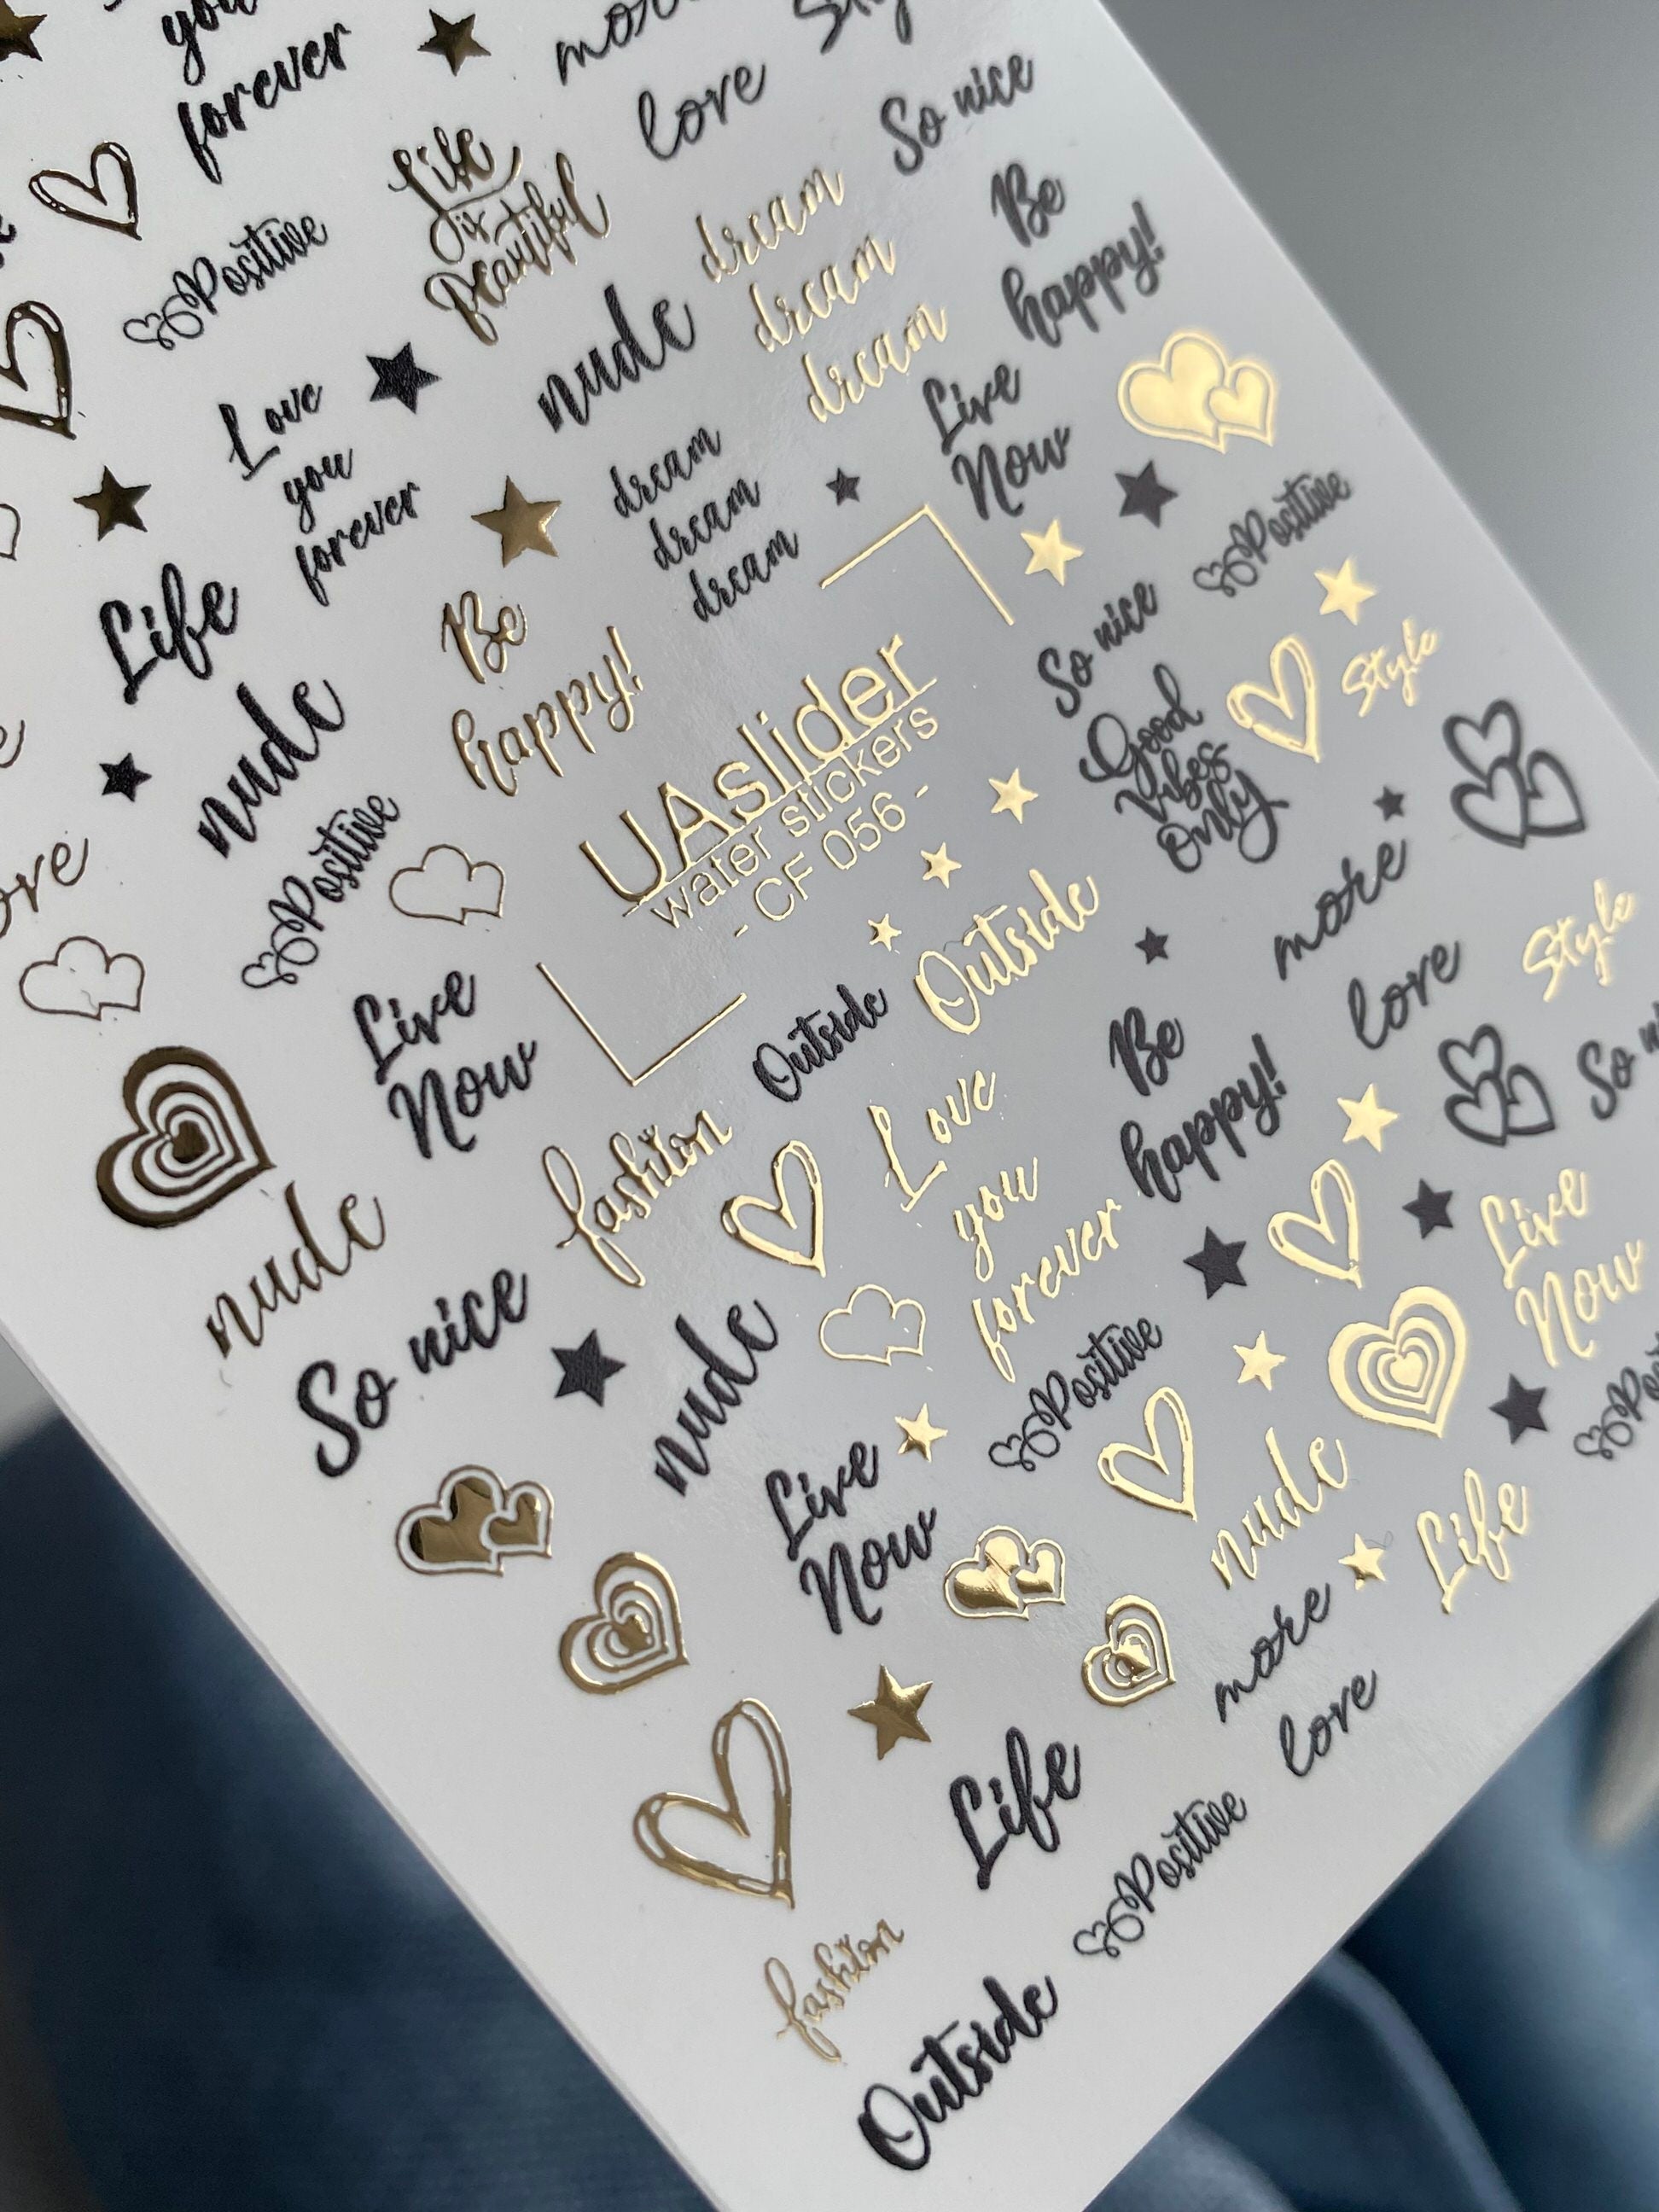 you
forever
more
love
Style
So nice
Positive
Life
is
Beautiful
dream
dream
dream
Be
happy!
Love
you
forever
nude
dream
dream
dream
Live
Now
Positive
Life
Be
happy!
So nice
Style
nude
UAslider
water stickers
- CF 056 -
Good
Vibes
Only
Positive
more
love
Style
Live
Now
Outside
Outside
Be
happy!
So
nude
fashion
Love
you
forever
Live
Now
So nice
nude
Positive
Live
Now
nude
Life
more
love
Life
Positive
fashion
Outside